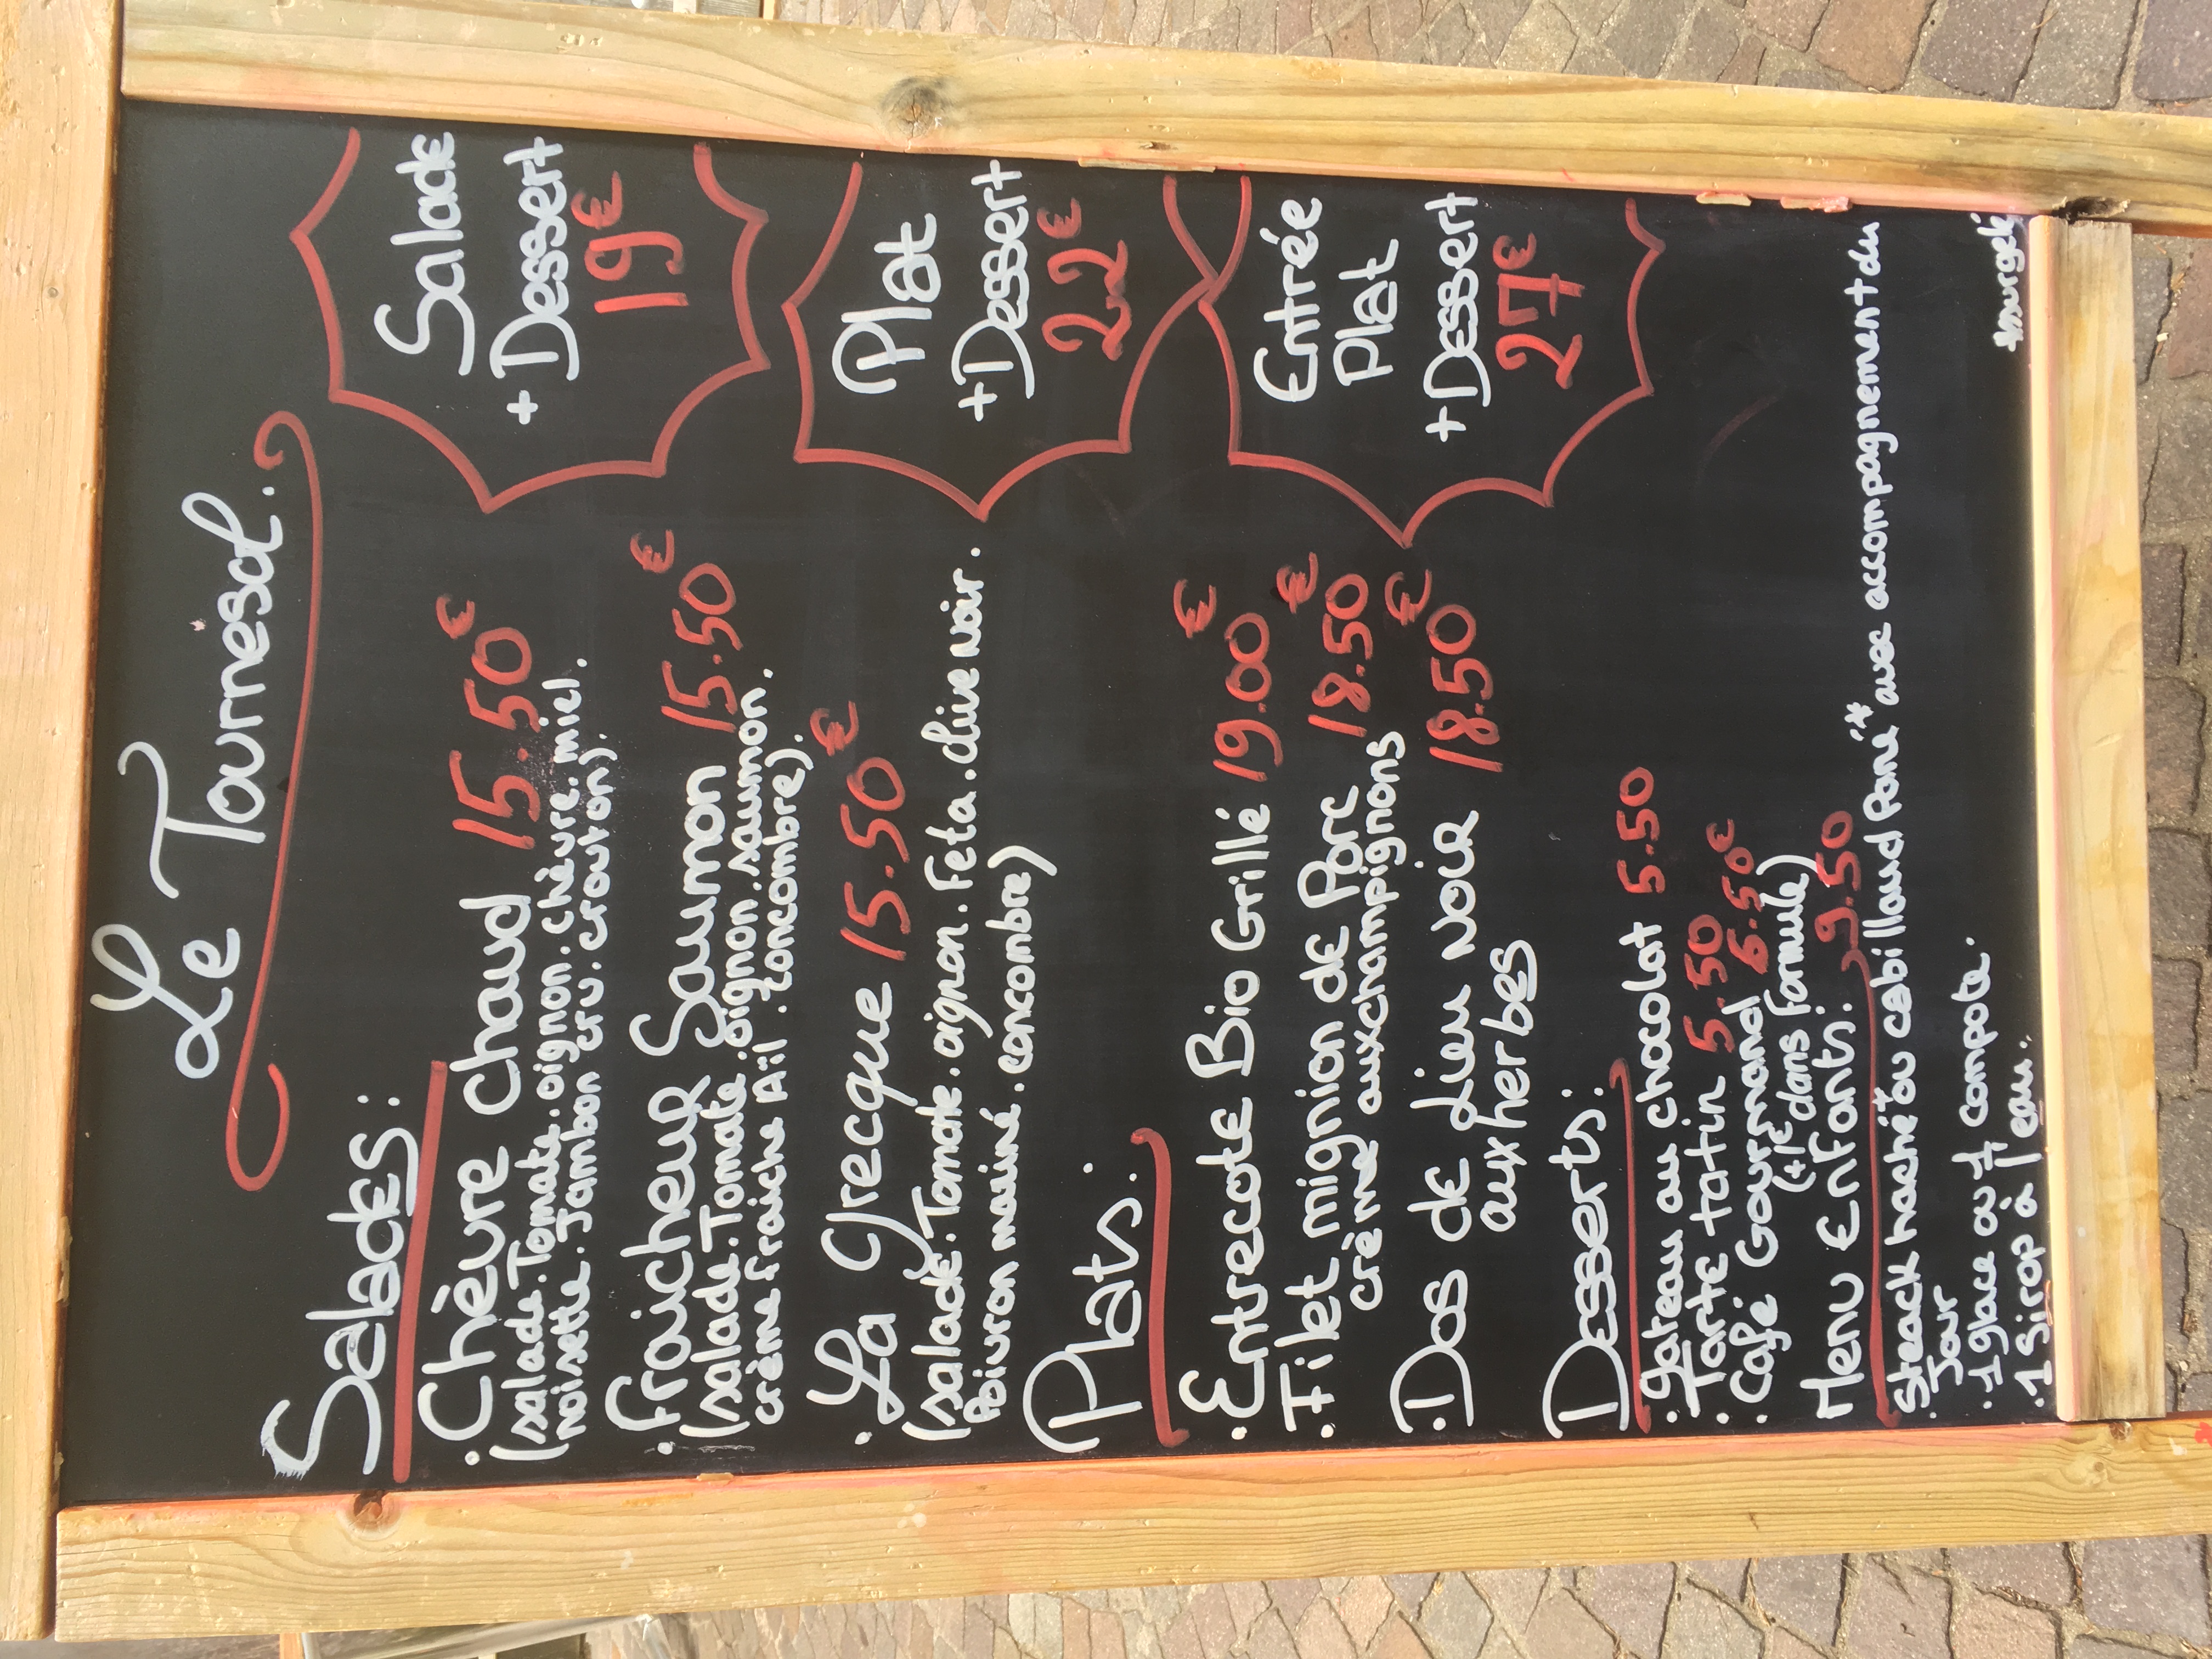 Le Tournesol.
Salades:
. Chèvre chaud 15.50€
(salade. Tomate. oignon. chèvre. miel.
noisette. Jambon cru. crouton).
. fraicheur Saumon 15.50€
(salade. Tomate. oignon. saumon.
crème fraiche Ail. concombre).
. La Grecque 15.50€
(salade. Tomate. oignon. Feta. olive noir.
Poivron mariné. concombre)
Plats:
. Entrecote Bio Grillé 19.00€
. Filet mignion de Porc 18.50€
crème aux champignons
. Dos de Lieu noir 18.50€
aux herbes
Desserts:
. Gateau au chocolat 5.50
. Tarte tatin 5.50
. Café Gourmand 6.50€
(+1€ dans formule)
Menu Enfants: 9.50
. Steack haché* ou cabillaud Pané** avec accompagnement du
Jour
. 1 glace ou 1 compote.
. 1 Sirop à l'eau.
Salade
+ Dessert
19€
Plat
+ Dessert
22€
Entrée
Plat
+ Dessert
27€